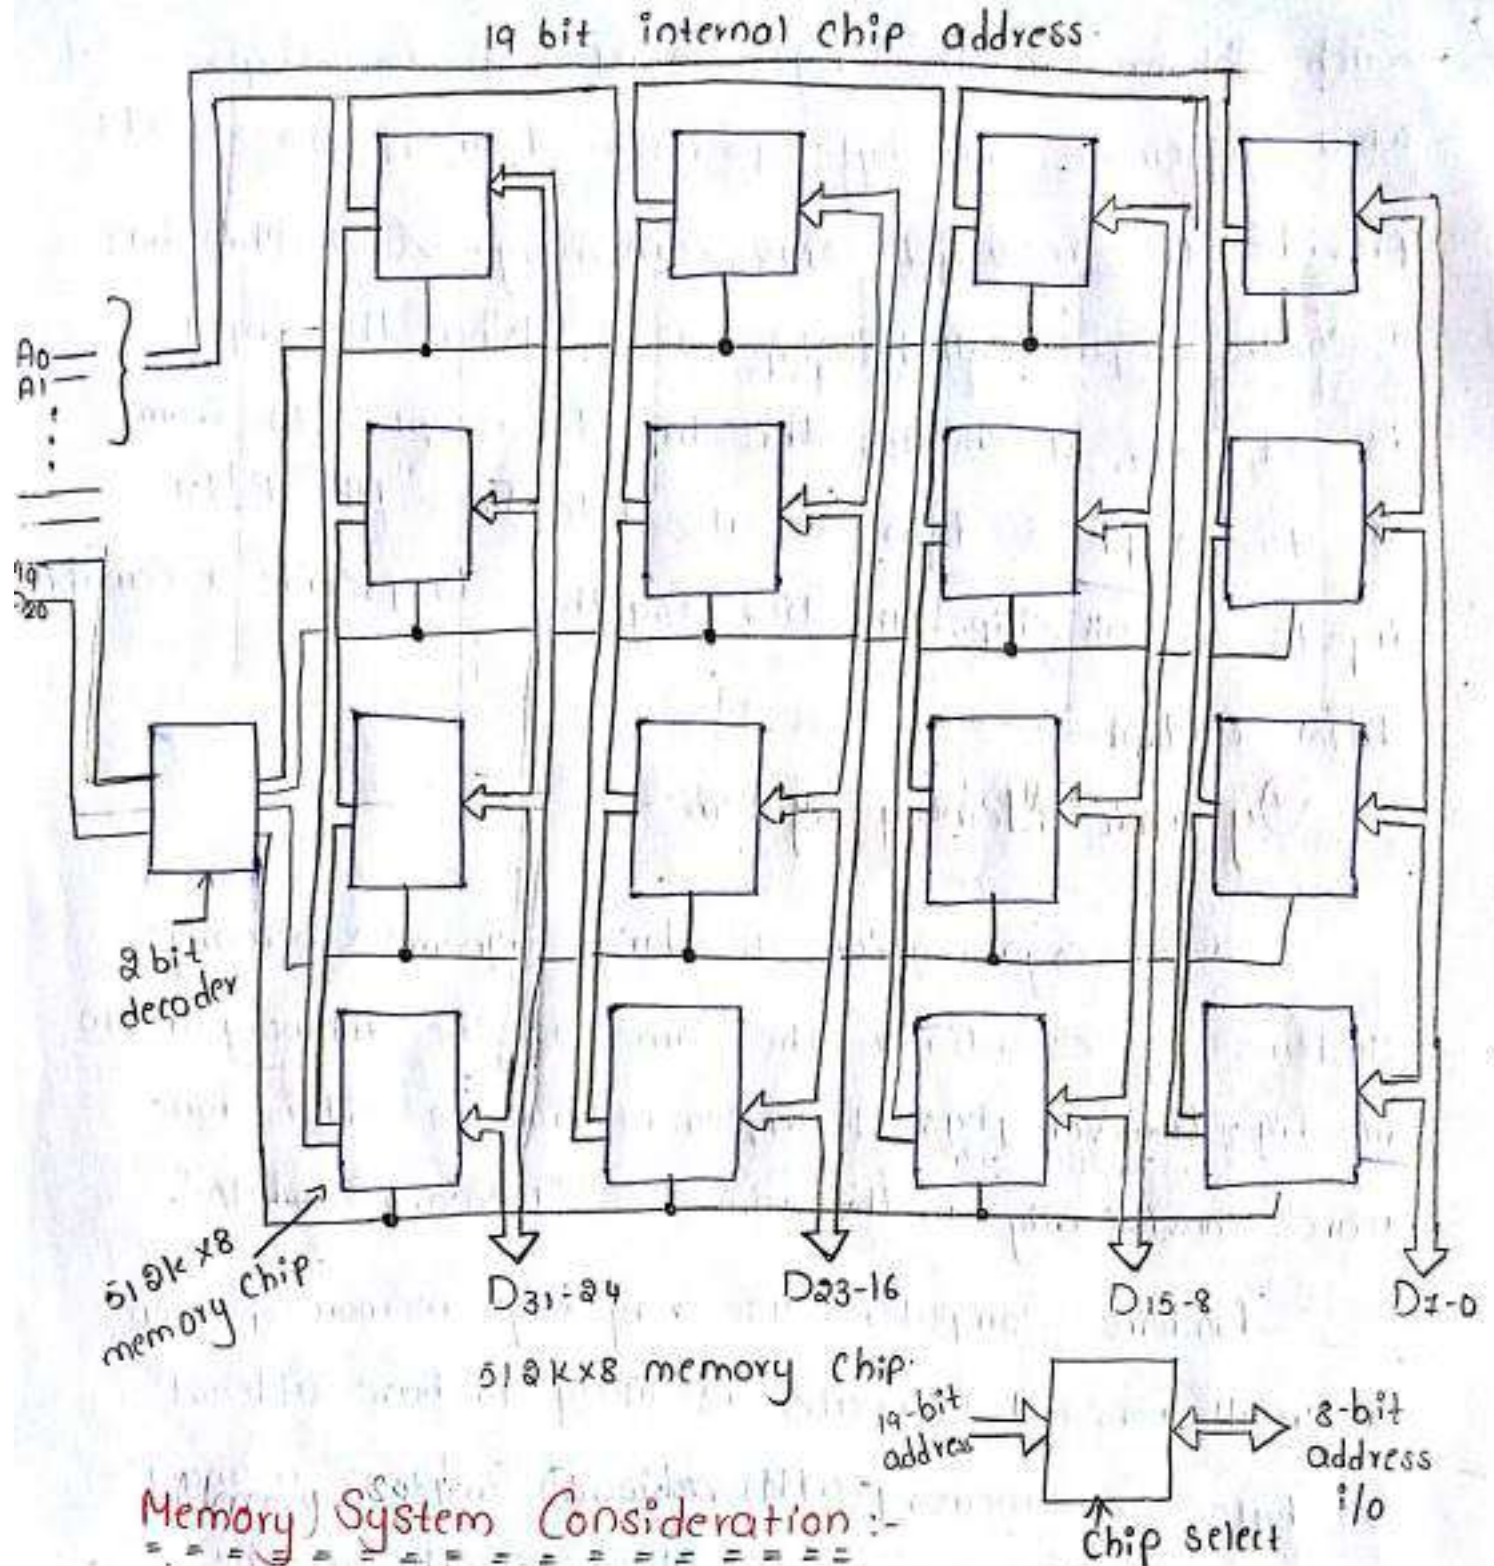 19 bit internal chip address.
A0
A1
19
20
2 bit
decoder
512k x8
memory chip.
D31-24
D23-16
D15-8
D7-0
512k x8 memory chip.
19-bit
address
8-bit
address
i/o
chip select
Memory System Consideration :-